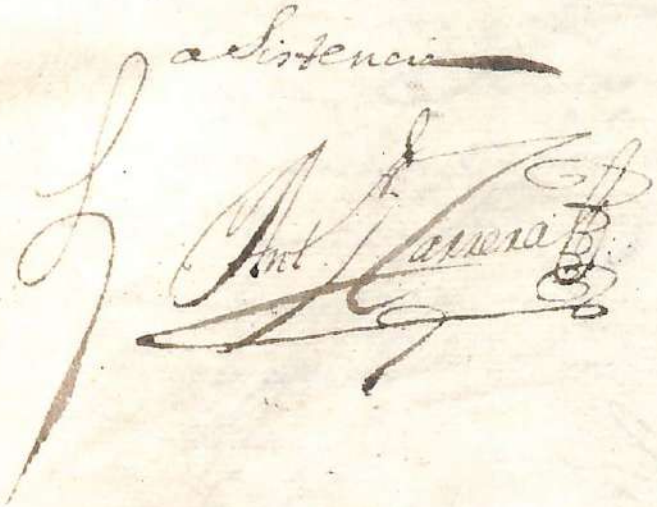 asistencia
Ant. Carrera